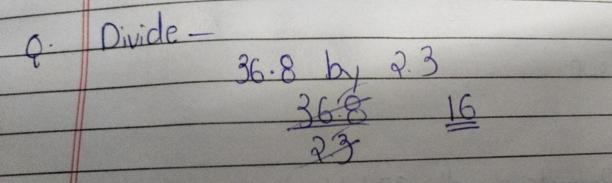 Q. Divide -
36.8 by 2.3
36.8 16
23